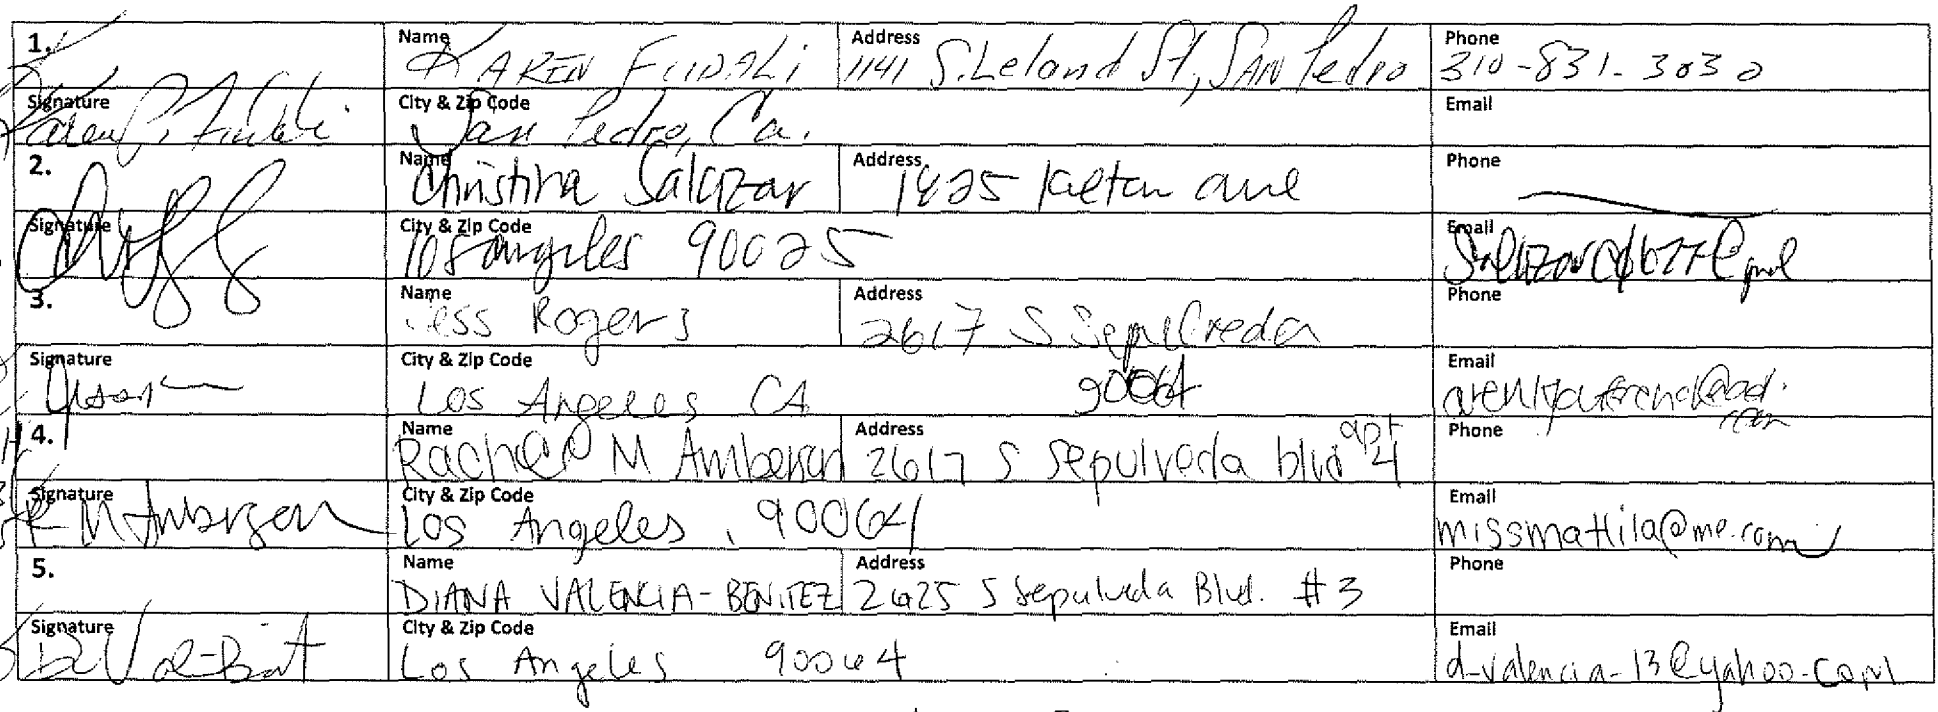 1. Name KAREN FUDALI Address 1141 S. Leland St, SAN Pedro Phone 310-831-3030
Signature City & Zip Code San Pedro, Ca. Email
2. Name Christina Salazar Address 1825 Phone
Signature City & Zip Code los angeles 90025 Email
3. Name Jess Rogers Address 2617 S Sepulveda Phone
Signature City & Zip Code Los Angeles CA 90064 Email
4. Name Rachel M Address 2617 S Sepulveda blvd apt 4 Phone
Signature City & Zip Code Los Angeles, 90064 Email missmattila@me.com
5. Name DIANA VALENCIA-BENITEZ Address 2625 S Sepulveda Blvd. #3 Phone
Signature City & Zip Code Los Angeles 90064 Email d-valencia-13@yahoo.com